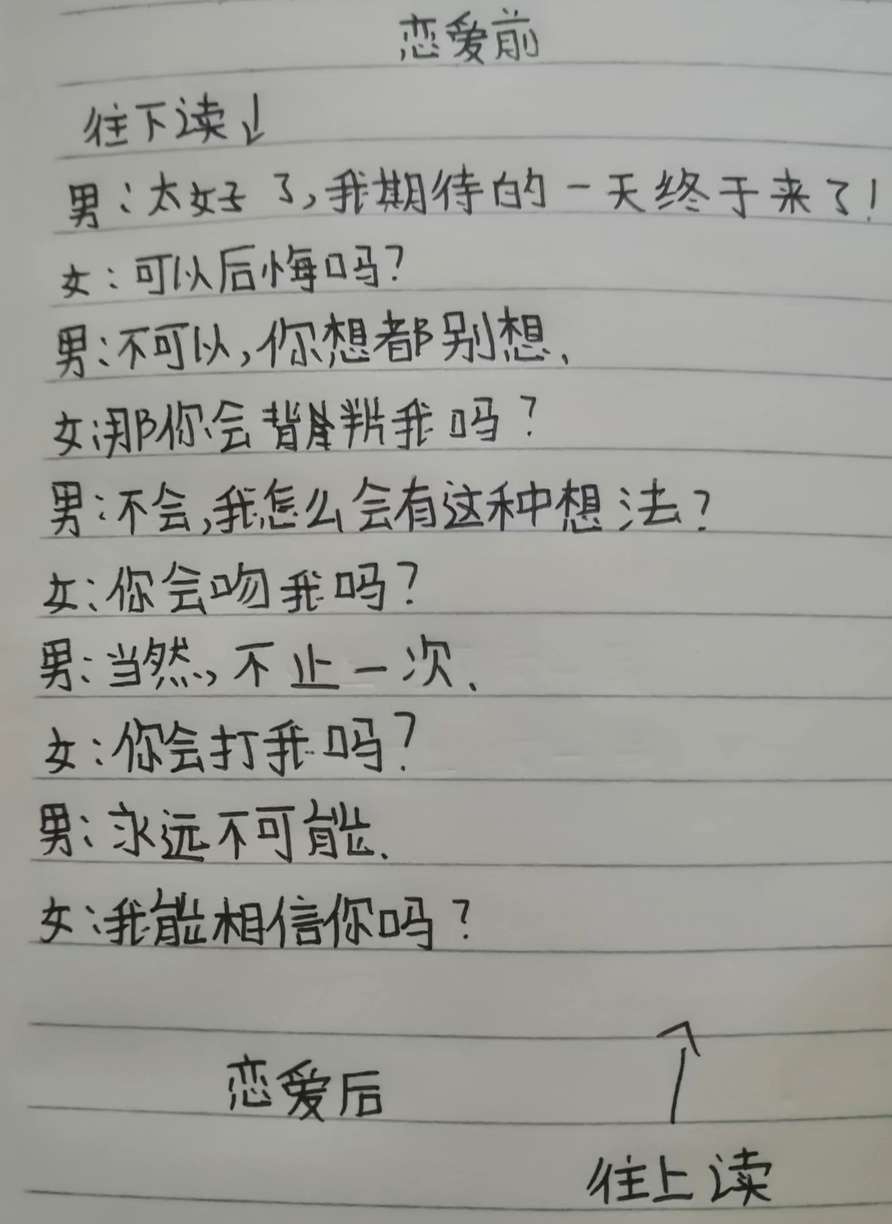 恋爱前
往下读↓
男:太好了,我期待的一天终于来了!
女:可以后悔吗?
男:不可以,你想都别想.
女:那你会背叛我吗?
男:不会,我怎么会有这种想法?
女:你会吻我吗?
男:当然,不止一次.
女:你会打我吗?
男:永远不可能.
女:我能相信你吗?
恋爱后
↑
往上读